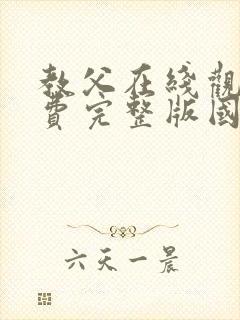 教父在綫觀
費完整版國
六天一晨